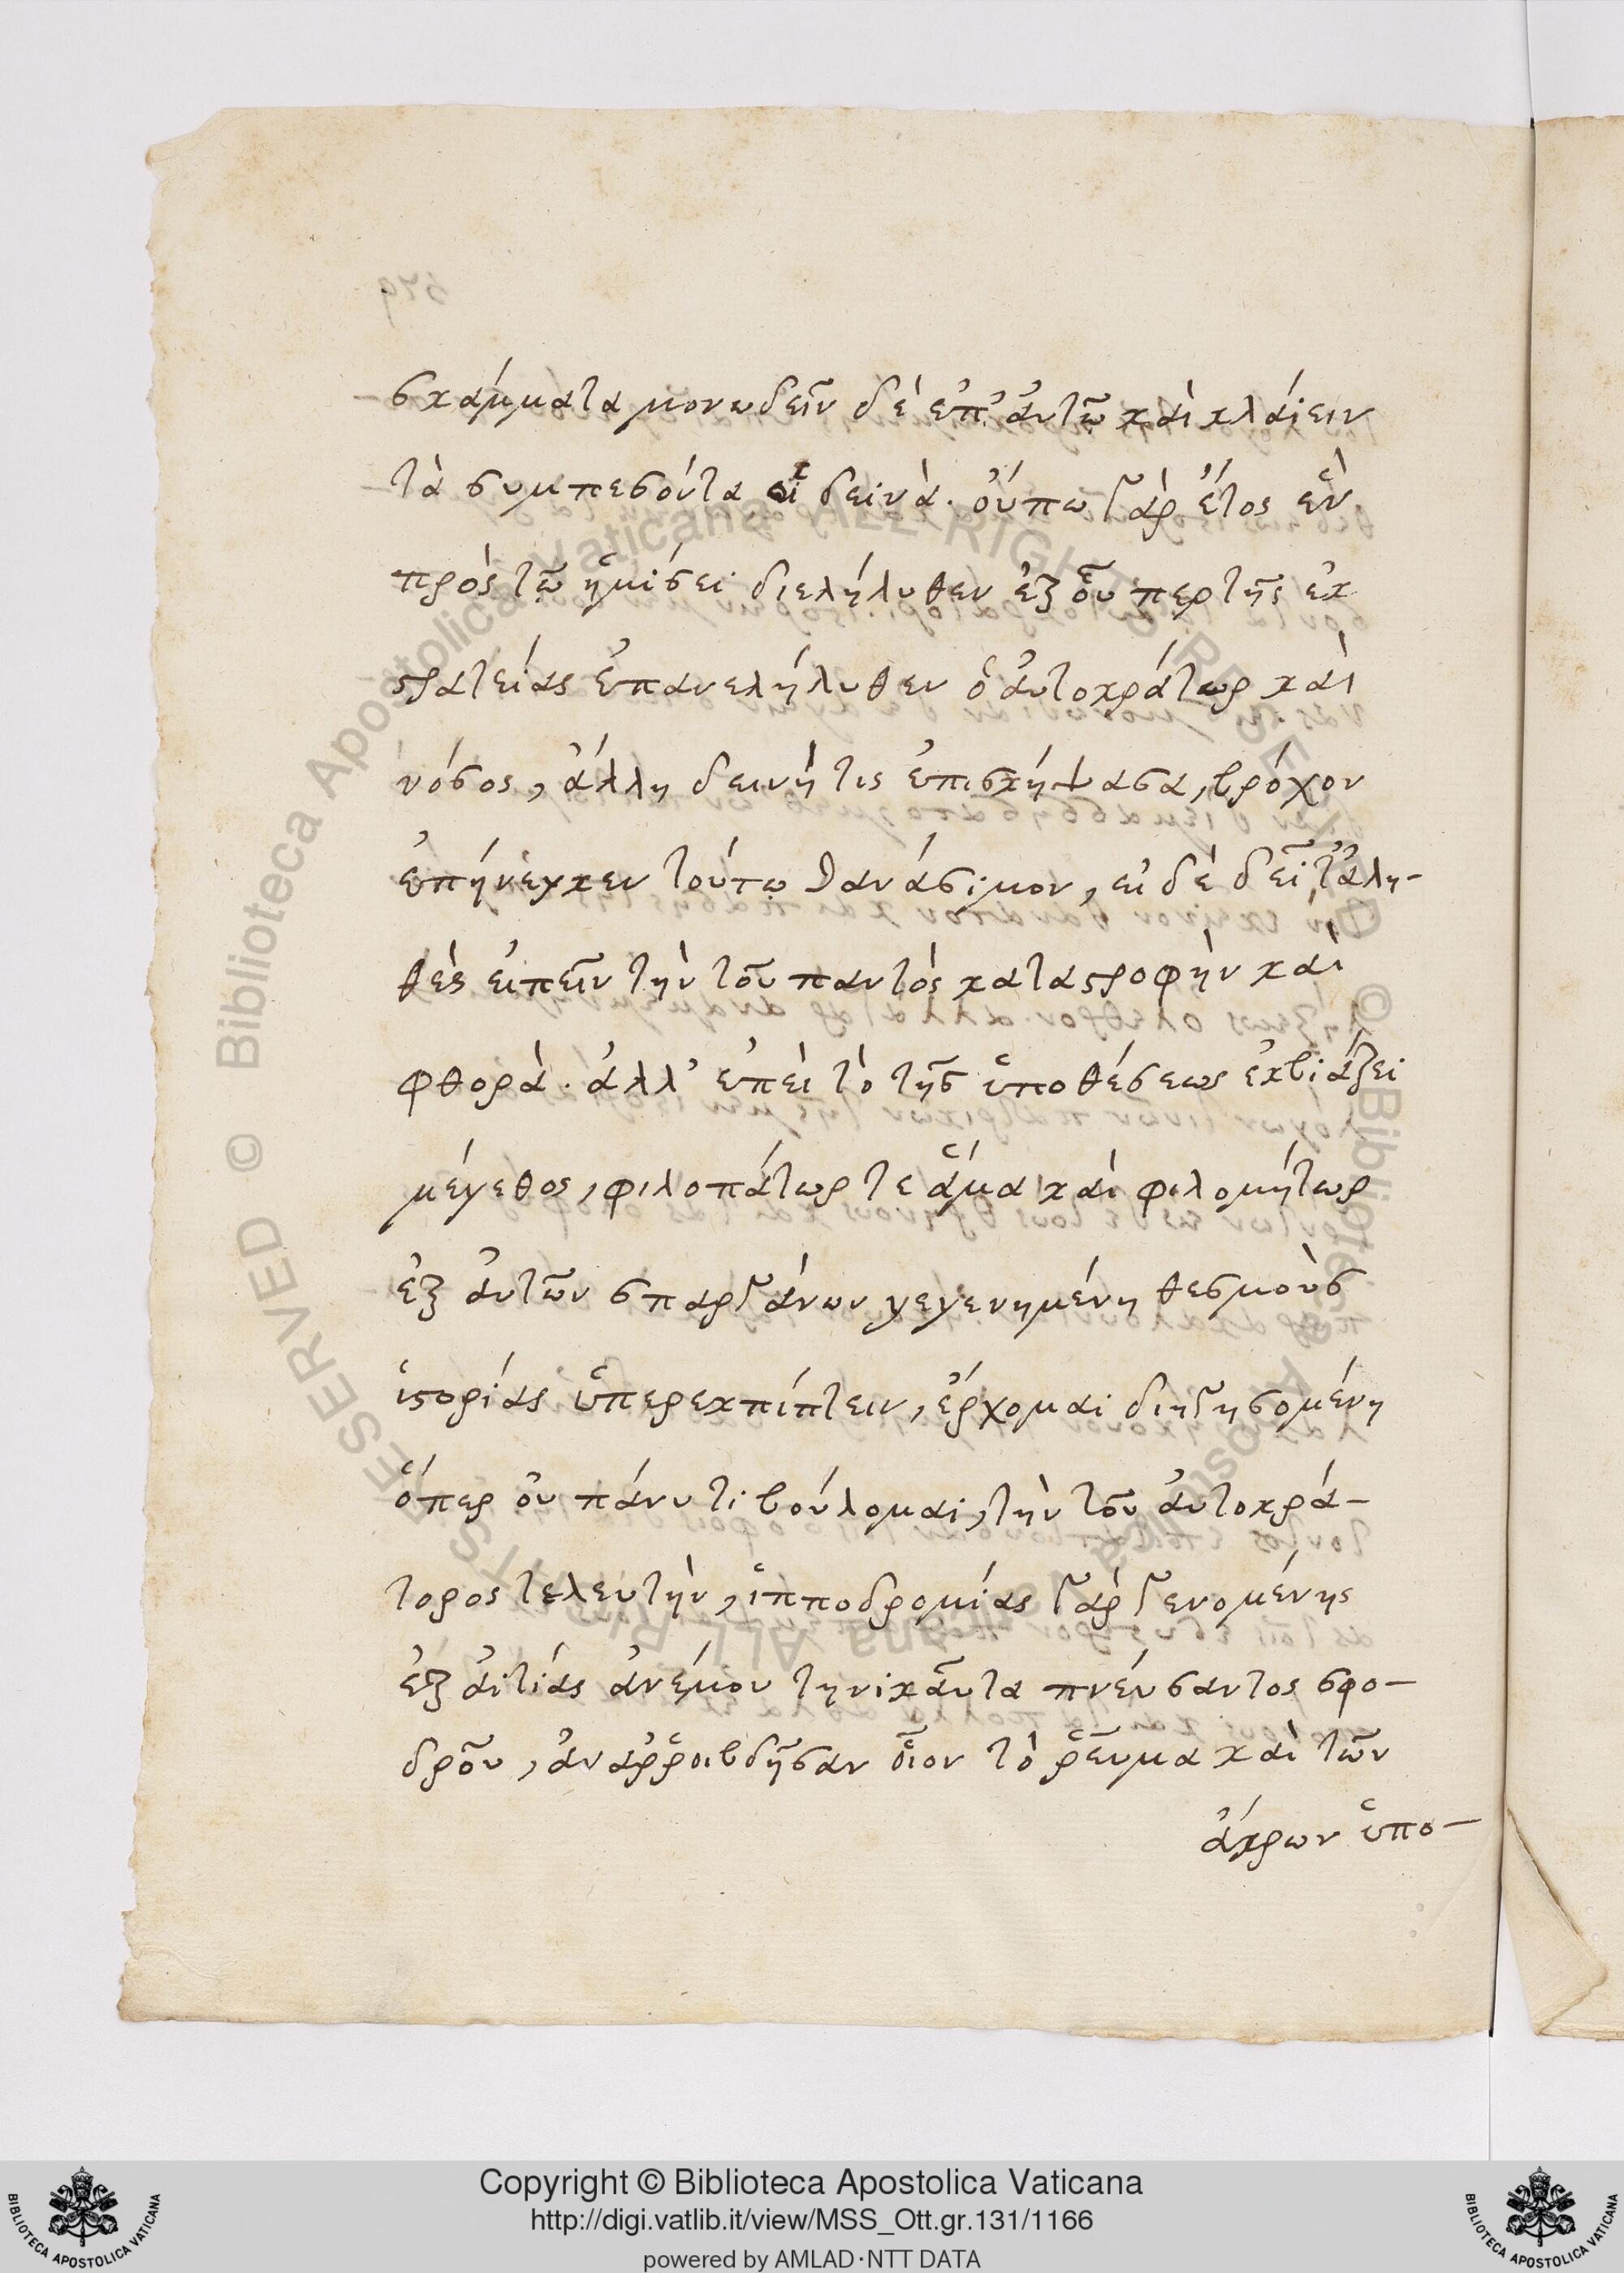 σκάμματα μονωδεῖν δὲ ἐπ' ἀυτῷ καὶ κλάιειν
τὰ συμπεσόντα οἱ δεινὰ. οὔπω γὰρ ἔτος ἓν
πρὸς τῷ ἡμίσει διελήλυθεν ἐξ ὅυ περ τῆς ἐκ
στρατείας ἐπανελήλυθεν ὁ ἀυτοκράτωρ καὶ
νόσος, ἄλλη δεινή τις ἐπισκήψασα, βρόχον
ἐπήνεγκεν τούτῳ θανάσιμον, εἰ δὲ δεῖ τἀλη-
θὲς ειπεῖν τὴν τοῦ παντὸς καταστροφὴν καὶ
φθορά. ἀλλ' ἐπεὶ τὸ τῆς ὑποθέσεως ἐκβιάζει
μέγεθος, φιλοπάτωρ τε ἅμα καὶ φιλομήτωρ
ἐξ ἀυτῶν σπαργάνων γεγενημένη θεσμοὺς
ἱστορίας ὑπερεκπίπτειν, ἔρχομαι διηγησομένη
ὅπερ ὀυ πάνυ τι βούλομαι, τὴν τοῦ ἀυτοκρά-
τορος τελευτὴν, ἱπποδρομίας γὰρ γενομένης
ἐξ ἀιτίας ἀνέμου τηνικᾶυτα πνέυσαντος σφο-
δροῦ, ἀναῤῥοιβδῆσαν ὁῖον τὸ ῥεῦμα καὶ τῶν
ἄκρων ὑπο-
© Biblioteca Apostolica Vaticana ALL RIGHTS RESERVED
© Biblioteca Apostolica Vaticana ALL RIGHTS RESERVED
Copyright © Biblioteca Apostolica Vaticana
http://digi.vatlib.it/view/MSS_Ott.gr.131/1166
powered by AMLAD·NTT DATA
BIBLIOTECA APOSTOLICA VATICANA
BIBLIOTECA APOSTOLICA VATICANA